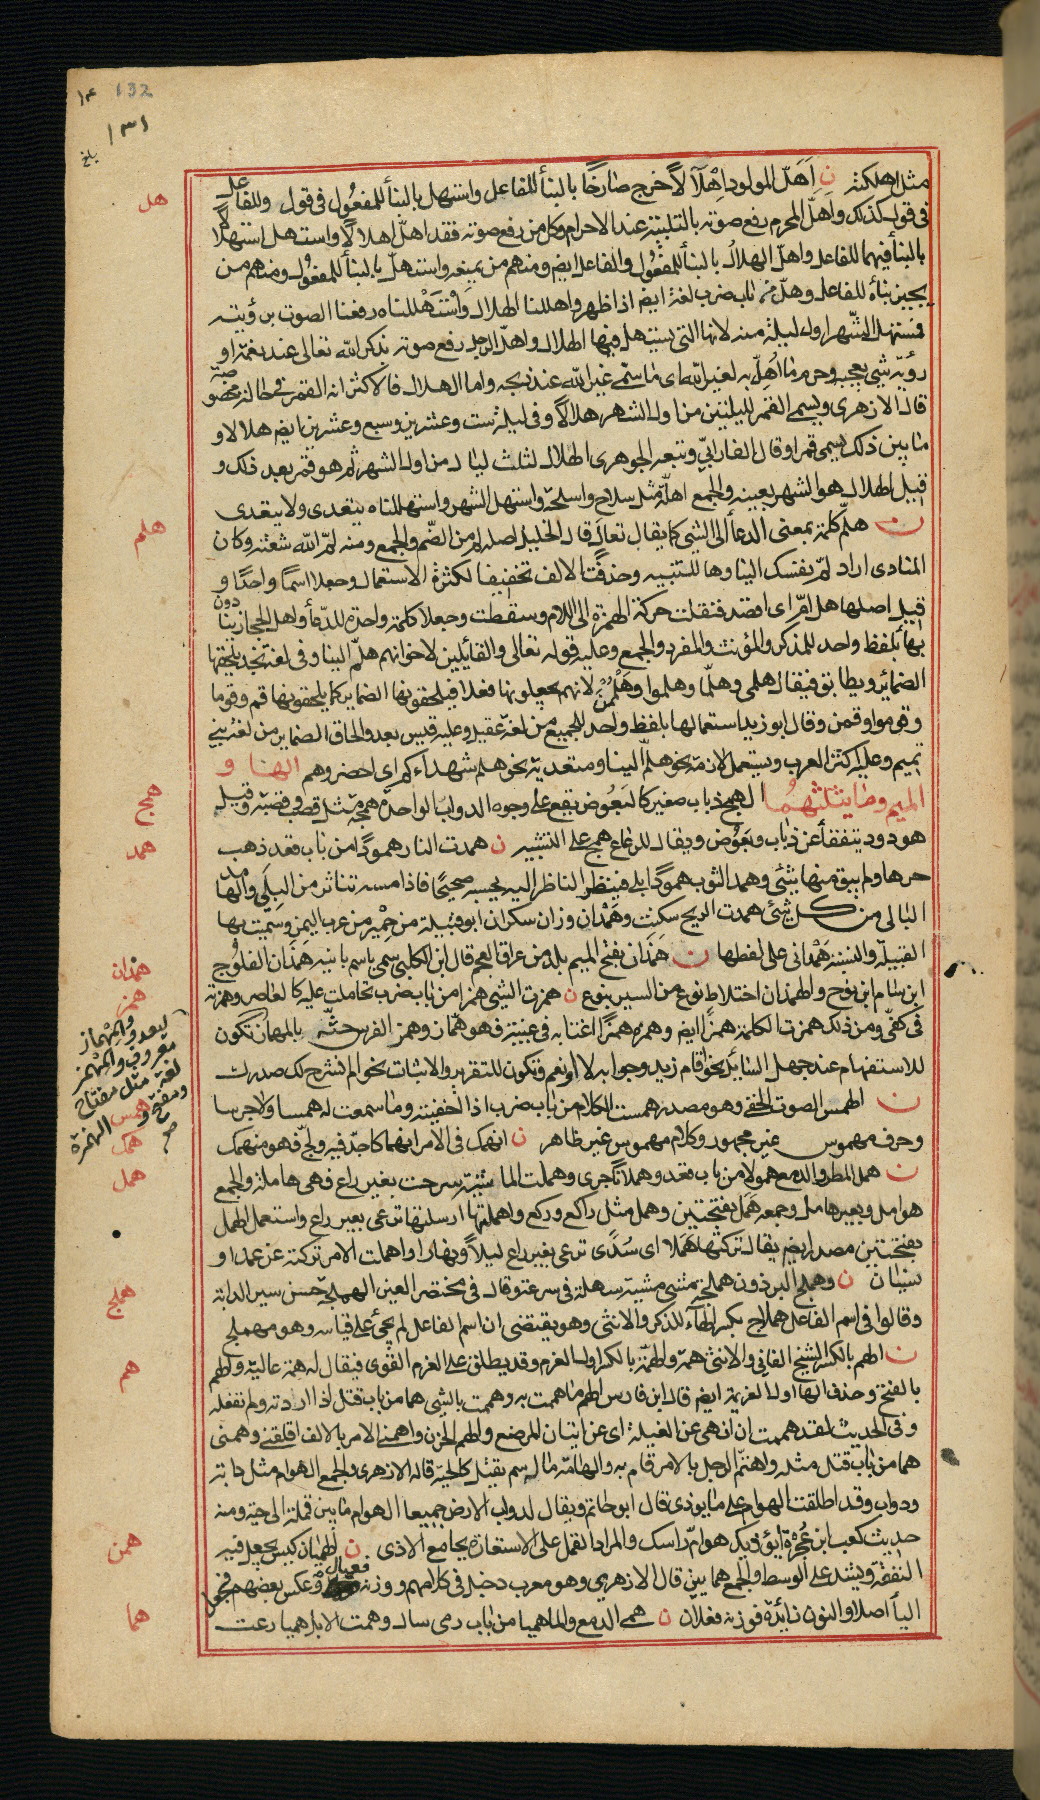 132
١٣١
مثل اهلكته ن اَهَلّ المولود اِهْلَالًا خرج صارخًا بالبنأ للفاعل واستهل بالبنأ للمفعُول فى قول وللفاعل
هل
فى قول كذلك واهلّ المحرم رفع صوته بالتلبية عند الاحرام وكل من رفع صوته فقد اهلّ اهلالًا واستهل استهلالًا
بالبنأ فيهما للفاعل واهلّ الهلالُ بالبنأ للمفعُول وللفاعل ايضا ومنهم من يمنعه واستهلّ بالبنأ للمفعُول ومنهم من
يجيز بناءه للفاعل وهلّ من باب ضرب لغة ايضا اذا ظهر واهللنا الهلال واسْتَهْللناه رفعنا الصوت برؤيته
مستهل الشّهر اول ليلة منه لانها التى يستهل فيها الهلال واهلّ الرجل رفع صوته بذكر الله تعالى عند نعمة او
رؤية شئ يعجبه وحرم ما اُهِلّ به لغير الله اى ما سُمّى غير الله عند ذبحه واما الهلال فالاكثر انه القمر فى حالة مخصوصة
قال الازهرى ويسمى القمر لليلتين من اول الشهر هلالًا وفى ليلة ست وعشرين وسبع وعشرين ايضا هلالا و
ما بين ذلك يسمى قمرا وقال الفارابىّ وتبعه الجوهرى الهلال لثلث ليال من اول الشهر ثم هو قمر بعد ذلك و
قيل الهلال هو الشهر بعينه والجمع اهلّة مثل سلاح واسلحة واستهل الشهر واستهللناه يتعدى ولا يتعدى
ن هلمّ كلمة بمعنى الدعأ الى الشئ كما يقال تعالَ قال الخليل اصله لمّ من الضّم والجمع ومنه لمّ الله شعثه وكان
هلم
المنادى اراد لمّ نفسك الينا وها للتنبيه وحذفت الالف تخفيفا لكثرة الاستعمال وجعلا اسمًا واحدًا و
قيل اصلها هل اُمّ اى اقصد فنقلت حركة الهمزة الى اللام وسقطت وجعلا كلمة واحدة للدعأ واهل الحجاز ينادون
بها بلفظ واحد للمذكر والمؤنث والمفرد والجمع وعليه قوله تعالى والقائلين لاخوانهم هلمّ الينا وفى لغة نجد يلحقها
الضمائر ويطابق فيقال هلمى وهلمّا وهلموا وهَلْمُمْنَ لانهم يجعلونها فعلا فيلحقونها الضمائر كما يلحقونها قم وقوما
وقوموا وقمن وقال ابو زيد استعمالها بلفظ واحد للجميع من لغة عقيل وعليه قيس بعد والحاق الضماير من لغة بنى
تميم وعليه اكثر العرب وتستعمل لازمة نحو هلمّ الينا ومتعدية نحو هلم شهداءكم اى احضروهم الهاء و
الميم وما يثلثهُما الهمج ذباب صغير كالبعُوض يقع على وجوه الدواب الواحدة همجة مثل قصب وقصبة وقيل
همج
هو دود يتفقأ عن ذباب وبعُوض ويقال للرعاع همج على التشبيه ن همدت النار همودًا من باب قعد ذهب
همد
حرها ولم يبق منها شئ وهمد الثوب همودًا بلى فينظر الناظر اليه يحسبه صحيحًا فاذا مسه تناثر من البلى والهامد
البالى من كل شئ همدت الريح سكنت وهَمْدان وزان سكران ابو قبيلة من حِمْير من عرب اليمن وسمّيت بها
القبيلة والنسبة هَمْدانى على لفظها ن همَذان بفتح الميم بلد من عراق العجم قال ابن الكلبى سمى باسم بانيه همَذان الفلوُج
همذان
ابن سام ابن نوح والهمذان اختلاط نوع من السير بنوع ن همزت الشئ همزا من باب ضرب تحاملت عليه كالعاصر وهمزته
همز
فى كفى ومن ذلك همزت الكلمة همزًا ايضا وهمزه همزًا اغتابه فى غيبته فهو همّاز وهمز الفرس حثّه بالمهماز تكون
ليعدو والمهماز
معروف والمِهْمز
لغة مثل مفتاح
ومفتح و
الهمزة
صح
للاستفهام عند جهل السائل نحو أقام زيد وجوابه لا او نعم وتكون للتقرير والاثبات نحو الم نشرح لك صدرك
ن الهمس الصوت الخفى وهو مصدر همست الكلام من باب ضرب اذا اخفيته وما سمعت له همسا ولا جرسا
همس
وحرف مهموس غير مجهور وكلام مهموس غير ظاهر ن انهمك فى الامر انهماكا جدّ فيه ولجّ فهو منهمك
همك
ن همل المطر والدمع همولا من باب قعد وهملانًا جرى وهملت الماشية سرحت بغير راع فهى هاملة والجمع
همل
هوامل وبعير هامل وجمعه هَمَل بفتحتين وهمل مثل راكع وركع واهملتها ارسلتها ترعى بغير راع واستعمل الهمل
بفتحتين مصدرا ايضا يقال تركتها هَمَلا اى سُدًى ترعى بغير راع ليلاً ونهارا واهملت الامر تركته عن عمد او
نسيان ن وهملج البرذون هملجة مشى مشية سهلة فى سرعة وقال فى مختصر العين الهملجة حسن سير الدابة
هملج
وقالوا فى اسم الفاعل هملاج بكسر الهاء للذكر والانثى وهو يقتضى ان اسم الفاعل لم يجئ على قياسه وهو مهملج
ن الهم بالكسر الشيخ الفانى والانثى همة والهمّة بالكسر اول العزم وقد يطلق على العزم القوى فيقال له همة عالية والهم
هم
بالفتح وحذف الهاء اول العزيمة ايضا قال ابن فارس الهم ما هممت به وهممت بالشئ هما من باب قتل اذا اردته ولم تفعله
وفى الحديث لقد هممت ان انهى عن الغيلة اى عن اتيان المرضع والهم الحزن واهمنى الامر بالالف اقلقنى وهمنى
هما من باب قتل مثله واهتمّ الرجل بالامر قام به والهامّة ما له سم يقتل كالحيّة قاله الازهرى والجمع الهوام مثل دابة
ودواب وقد اطلقت الهوام على ما يوذى قال ابو حاتم ويقال لدواب الارض جميعا الهوام ما بين قملة الى حية ومنه
حديث كعب ابن عُجْرة ايؤذيك هوامّ راسك والمراد القمل على الاستعارة بجامع الاذى ن الهميان كيس يجعل فيه
همن
النفقة ويشد على الوسط والجمع همايين قال الازهرى وهو معرب دخيل فى كلامهم ووزنه فعيال وعكس بعضهم فجعل
اليأ اصلا والنون زائدة فوزنه فعلان ن همى الدمع والماء هميا من باب رمى سال وهمت الابل هميا رعت
هما